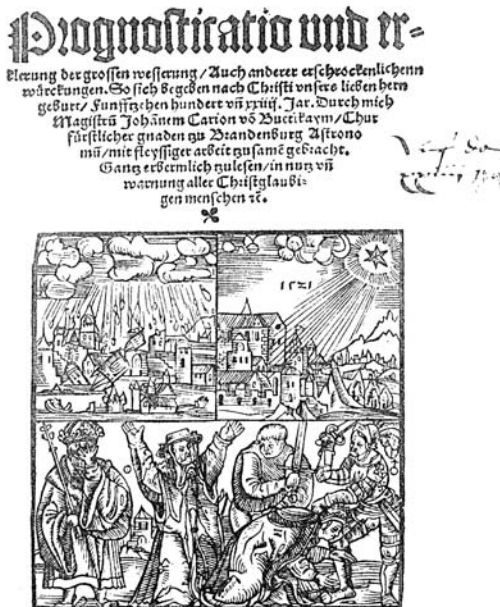 Prognosticatio und er-
klerung der grossen wesserung / Auch anderer erschrockenlichenn
würckungen. So sich begeben nach Christi unsers lieben hern
geburt / Funfftzehen hundert vñ xxiiij. Jar. Durch mich
Magistrũ Johãnem Carion võ Buetikaym / Chur
fürstlicher gnaden zu Brandenburg Astrono
mũ / mit fleyssiger arbeit zusamẽ gebracht.
Gantz erbermlich zulesen / in nutz vñ
warnung aller Christglaubi-
gen menschen ⁊c̃.
1521